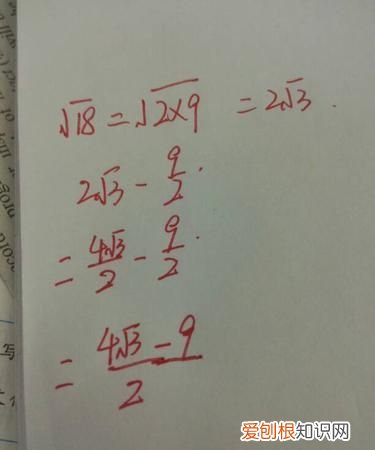 √18 = √2×9 = 2√3.
2√3 - 9/2.
= 4√3/2 - 9/2.
= 4√3-9/2
写
爱刨根知识网